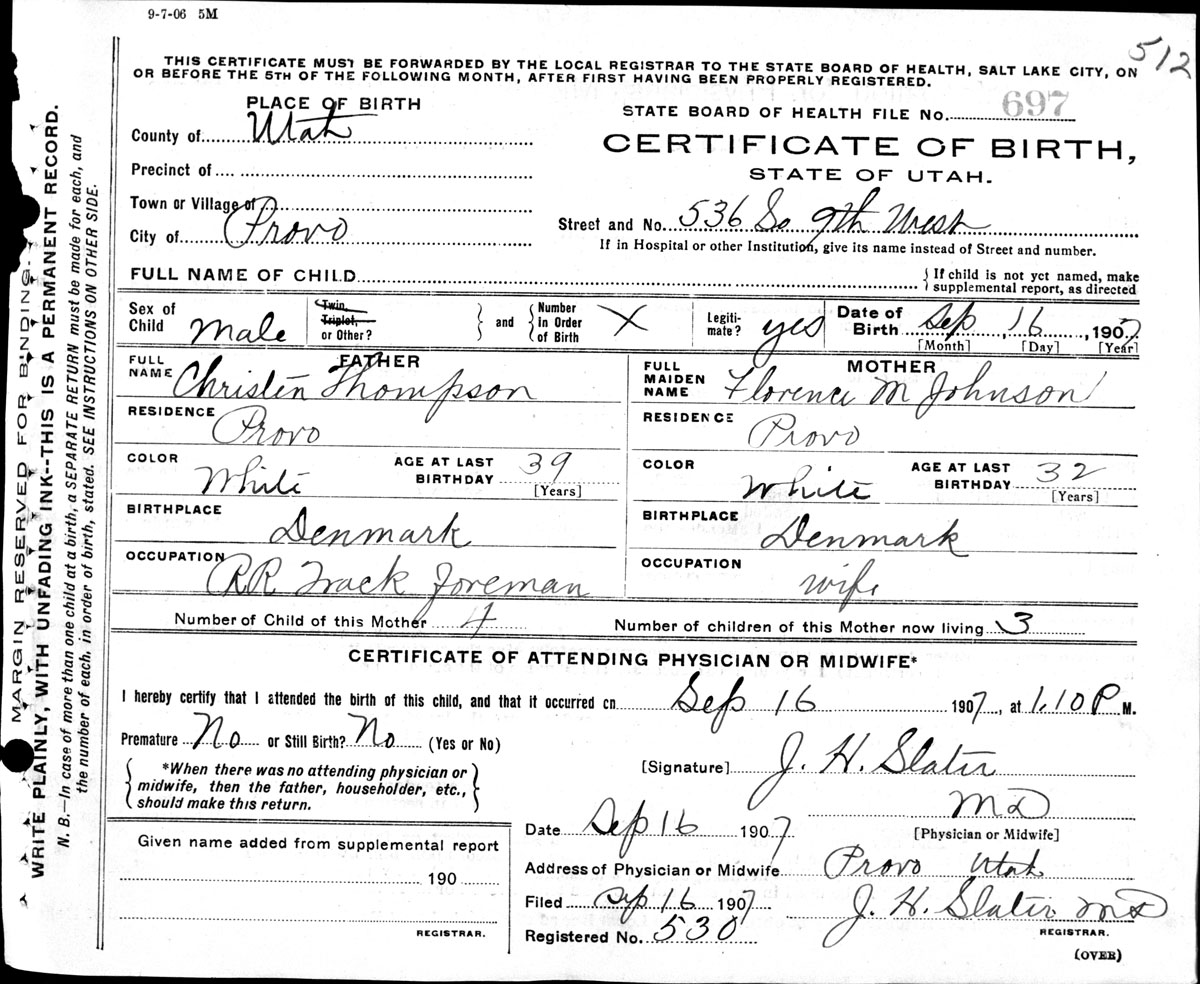 9-7-06 5M
512
THIS CERTIFICATE MUST BE FORWARDED BY THE LOCAL REGISTRAR TO THE STATE BOARD OF HEALTH, SALT LAKE CITY, ON
OR BEFORE THE 5TH OF THE FOLLOWING MONTH, AFTER FIRST HAVING BEEN PROPERLY REGISTERED.
PLACE OF BIRTH
STATE BOARD OF HEALTH FILE No. 697
County of Utah
CERTIFICATE OF BIRTH,
STATE OF UTAH.
Precinct of
Town or Village of
Street and No. 536 So 9th West
City of Provo
If in Hospital or other Institution, give its name instead of Street and number.
FULL NAME OF CHILD
If child is not yet named, make
supplemental report, as directed
Sex of Child Male
Twin, Triplet, or Other?
and
Number in Order of Birth X
Legiti-mate? yes
Date of Birth Sep 16, 1907
[Month] [Day] [Year]
FATHER
FULL NAME Christen Thompson
MOTHER
FULL MAIDEN NAME Florence M Johnson
RESIDENCE Provo
RESIDENCE Provo
COLOR White
AGE AT LAST BIRTHDAY 39 [Years]
COLOR White
AGE AT LAST BIRTHDAY 32 [Years]
BIRTHPLACE Denmark
BIRTHPLACE Denmark
OCCUPATION RR Track Foreman
OCCUPATION wife
Number of Child of this Mother 4
Number of children of this Mother now living 3
CERTIFICATE OF ATTENDING PHYSICIAN OR MIDWIFE*
I hereby certify that I attended the birth of this child, and that it occurred on Sep 16 1907, at 1.10 P M.
Premature No or Still Birth? No (Yes or No)
*When there was no attending physician or
midwife, then the father, householder, etc.,
should make this return.
[Signature] J. H. Slater
MD
[Physician or Midwife]
Date Sep 16 1907
Address of Physician or Midwife Provo Utah
Filed Sep 16 1907
J. H. Slater MD
REGISTRAR.
Registered No. 530
(OVER)
Given name added from supplemental report
190
REGISTRAR.
MARGIN RESERVED FOR BINDING.
WRITE PLAINLY, WITH UNFADING INK--THIS IS A PERMANENT RECORD.
N. B.—In case of more than one child at a birth, a SEPARATE RETURN must be made for each, and
the number of each, in order of birth, stated. SEE INSTRUCTIONS ON OTHER SIDE.